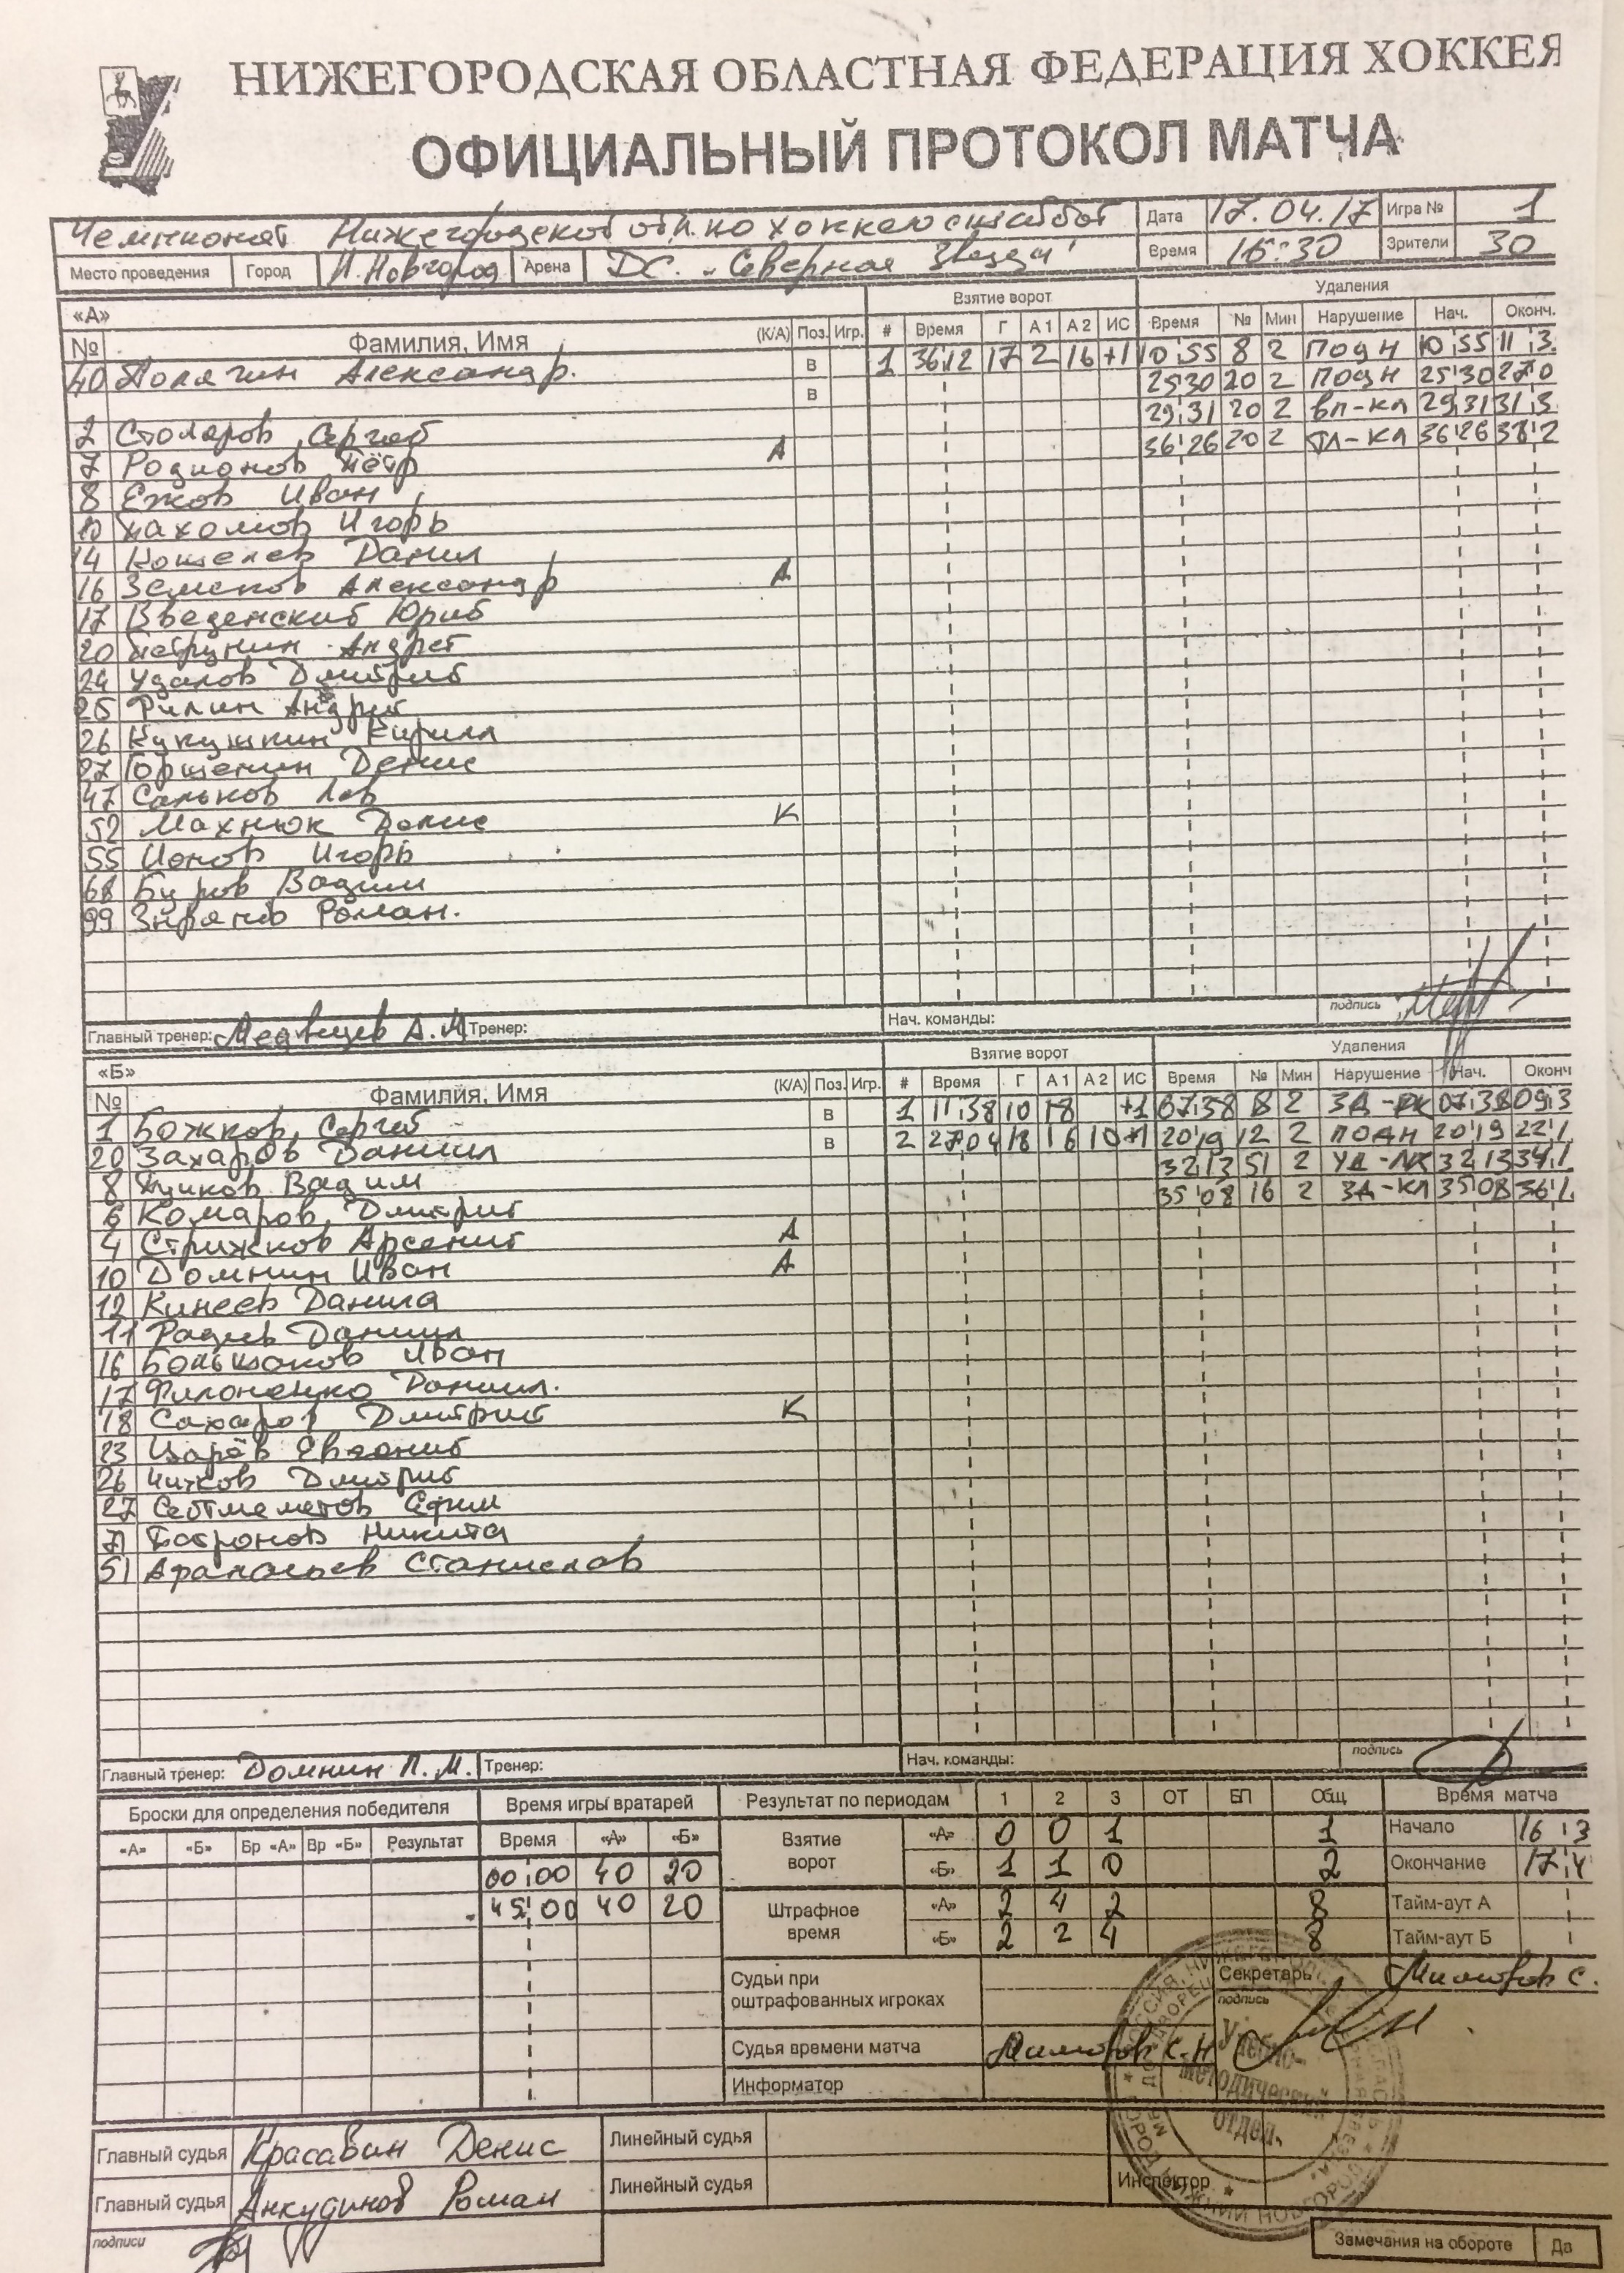 НИЖЕГОРОДСКАЯ ОБЛАСТНАЯ ФЕДЕРАЦИЯ ХОККЕЯ
ОФИЦИАЛЬНЫЙ ПРОТОКОЛ МАТЧА
Чемпионат Нижегородской обл. по хоккею с шайбой Дата 17.04.17 Игра № 1
Место проведения Город Н.Новгород Арена ДС. „Северная Звезда" Время 16:30 Зрители 30
«А» Взятие ворот Удаления
№ Фамилия, Имя (К/А) Поз. Игр. # Время Г А 1 А 2 ИС Время № Мин Нарушение Нач. Оконч.
40 Полягин Александр. В 1 36 12 17 2 16 +1 10 55 8 2 ПОДН 10 55 11 3
В 25 30 20 2 ПОДН 25 30 27 0
29 31 20 2 ВП-КЛ 29 31 31 3
2 Столяров Сергей 36 26 20 2 36 26 38 2
7 Родионов Пётр А
8 Ежов Иван
10 Пахомов Игорь
14 Кошелев Данил
16 Земсков Александр А
17 Введенский Юрий
20 Петрунин Андрей
24 Удалов Дмитрий
25 Филин Андрей
26 Кукушкин Кирилл
27 Горшенин Денис
47 Сальков Лев
52 Махнюк Денис К
55 Ионов Игорь
68 Буров Вадим
99 Роман.
Главный тренер: А. Тренер: Нач. команды: подпись
«Б» Взятие ворот Удаления
№ Фамилия, Имя (К/А) Поз. Игр. # Время Г А 1 А 2 ИС Время № Мин Нарушение Нач. Оконч
1 Божков Сергей В 1 11 38 10 18 +1 07 38 8 2 07 38 09 3
20 Захаров Даниил В 2 27 04 18 16 10 +1 20 19 12 2 ПОДН 20 19 22 1
8 Вадим 32 13 51 2 32 13 34 1
6 Комаров Дмитрий 35 08 16 2 ЗД-КЛ 35 08 36 1
4 Стрижков Арсений А
10 Домнин Иван А
12 Кинеев Данила
11 Радиев Даниил
16 Большаков Иван
17 Филоненко Даниил.
18 Сахаров Дмитрий К
23 Царёв Евгений
26 Чижков Дмитрий
27 Сейтмеметов Ефим
71 Никита
51 Станислав
Главный тренер: Домнин П. М. Тренер: Нач. команды: подпись
Броски для определения победителя Время игры вратарей Результат по периодам 1 2 3 ОТ БП Общ Время матча
«А» «Б» Бр «А» Вр «Б» Результат Время «А» «Б» Взятие ворот «А» 0 0 1 1 Начало 16 3
00:00 40 20 «Б» 1 1 0 2 Окончание 17 4
45:00 40 20 Штрафное время «А» 2 4 2 8 Тайм-аут А
«Б» 2 2 4 8 Тайм-аут Б
Судьи при оштрафованных игроках Секретарь С.
подпись
Судья времени матча С.Н
Информатор
Учебно-
методический
отдел.
Главный судья Красавин Денис Линейный судья
Главный судья Анкудинов Роман Линейный судья Инспектор
подписи
Замечания на обороте Да